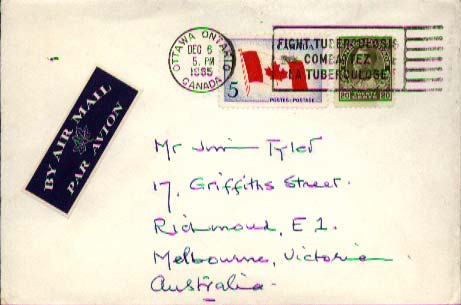 OTTAWA ONTARIO
DEC 6
5. PM
1965
CANADA
FIGHT TUBERCULOSIS
COMBATTEZ
LA TUBERCULOSE
CANADA
5
POSTES POSTAGE
20 20
BY AIR MAIL
PAR AVION
Mr Jim Tyler
17, Griffiths Street.
Richmond, E 1.
Melbourne, Victoria
Australia.